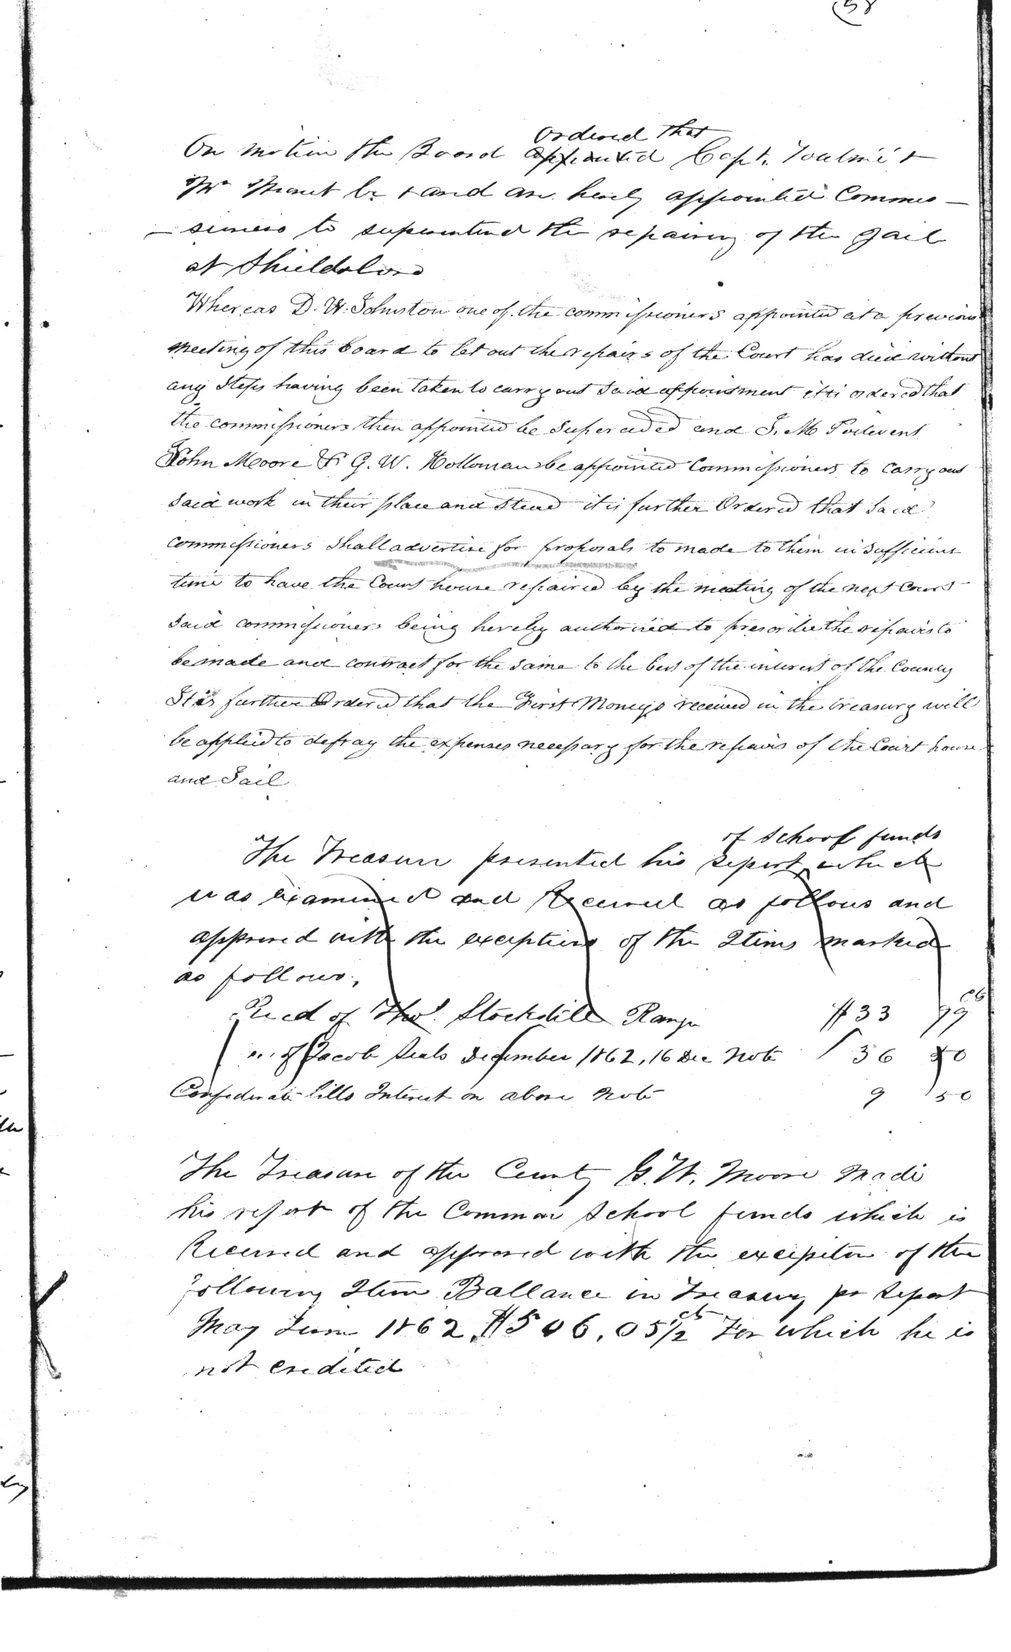 58
Ordered that
On motion the Board appointed Capt. Toulmé &
Mr Monet be & and are hereby appointed Commis-
-sioners to superintend the repairing of the Jail
at Shieldsboro
Whereas D. W. Johnston one of the commissioners appointed at a previous
meeting of this board to let out the repairs of the Court has died without
any steps having been taken to carry out said appointment it is ordered that
the commissioners then appointed be superceded and J. M Poitevent
John Moore & G. W. Holloman be appointed Commissioners to carry out
said work in their place and stead it is further Ordered that said
commissioners shall advertise for proposals to made to them in sufficient
time to have the Court house repaired by the meeting of the next Court
said commissioners being hereby authorized to prescribe the repairs to
be made and contract for the same to the best of the interest of the County
It is further Ordered that the First Moneys received in the treasury will
be applied to defray the expenses necessary for the repairs of the Court house
and Jail
of School funds
The Treasurer presented his report which
was examined and Received as follows and
approved with the exceptions of the Items marked
as follows,
Recd of Thos. Stockdill Range $33 99 cts
" of Jacob Seals December 1862, 16 Dec Note 36 50
Confederate bills Interest on above note 9 50
The Treasure of the County G. W. Moore made
his report of the Common School funds which is
Received and approved with the exceipiton of the
following Item Ballance in Treasury pr Report
May Term 1862, $506,05 1/2 cts For which he is
not credited